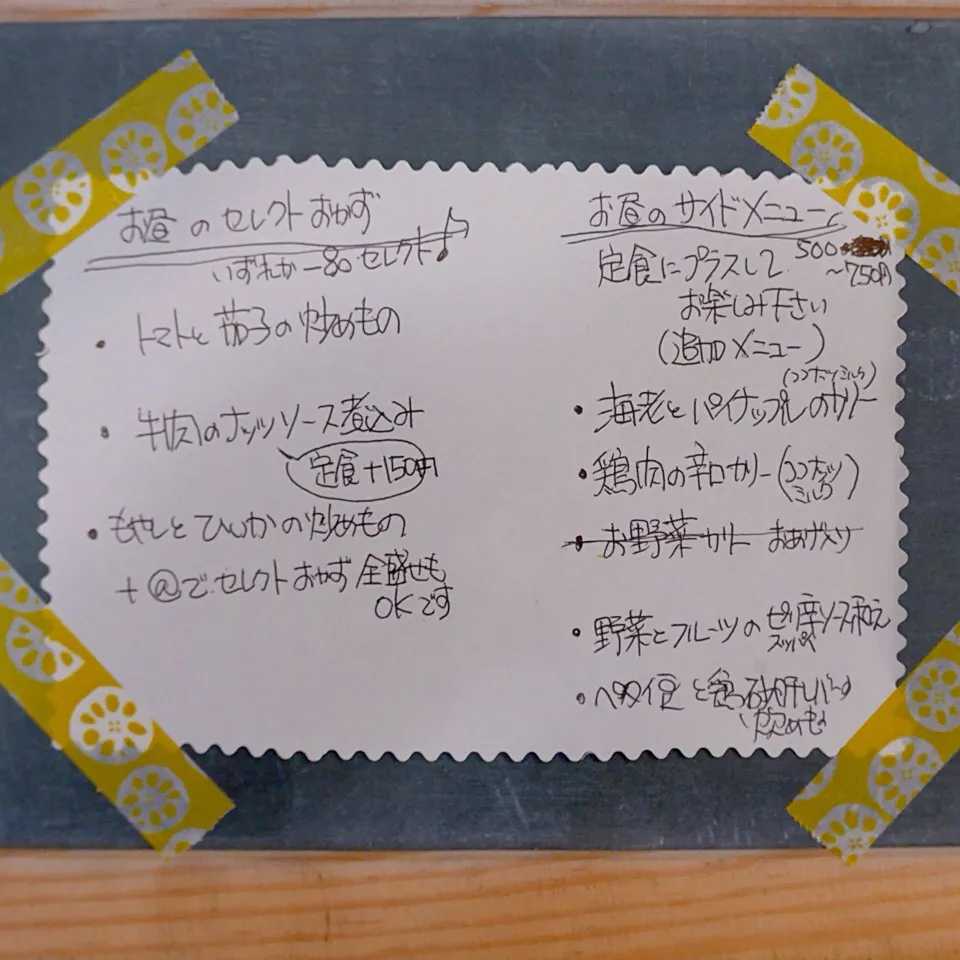 お昼のセレクトおかず
いずれか一80セレクト♪
・トマトと茄子の炒めもの
・牛肉のナッツソース煮込み
定食+150円
・もやしと の炒めもの
+@でセレクトおかず全盛せも
OKです
お昼のサイドメニュー
定食にプラスして 500
〜750円
お楽しみ下さい
(追加メニュー)
(ココナツミルク)
・海老とパイナップルのカリー
・鶏肉の辛口カリー(ココナッツ
ミルク)
・お野菜カリー おあげ入り
・野菜とフルーツのピリ辛ソース和え
スッパイ
・ と鶏砂肝レバーの
炒めもの